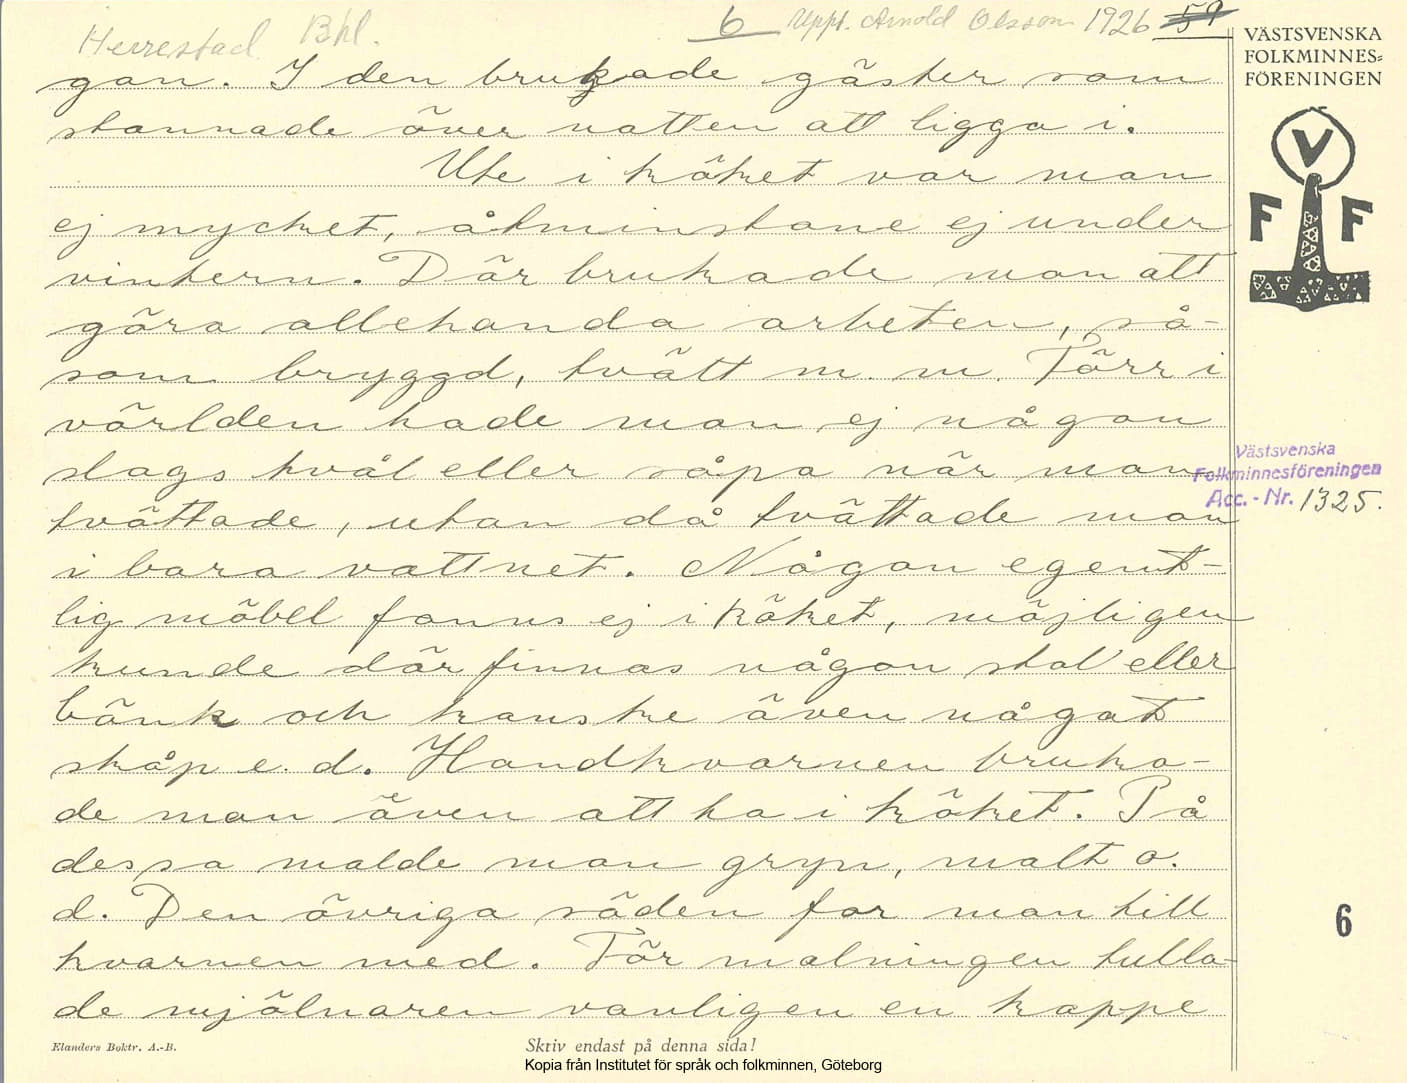 Herrestad Bhl. 6 Uppt. Arnold Olsson 1926 59
VÄSTSVENSKA
FOLKMINNES=
FÖRENINGEN
V
F F
gan. I den brukade gäster som
stannade över natten att ligga i.
Ute i köket var man
ej mycket, åtminstone ej under
vintern. Där brukade man att
göra allehanda arbeten, så-
som bryggd, tvätt m. m. Förr i
världen hade man ej någon
slags tvål eller såpa när man
Västsvenska
Folkminnesföreningen
Acc. - Nr. 1325.
tvättade, utan då tvättade man
i bara vattnet. Någon egent-
lig möbel fanns ej i köket, möjligen
kunde där finnas någon stol eller
bänk och kanske även något
skåp e. d. Handkvarnen bruka-
de man även att ha i köket. På
dessa malde man gryn, malt o.
d. Den övriga säden for man till
6
kvarnen med. För malningen tulla-
de mjölnaren vanligen en kappe
Elanders Boktr. A.-B. Skriv endast på denna sida!
Kopia från Institutet för språk och folkminnen, Göteborg